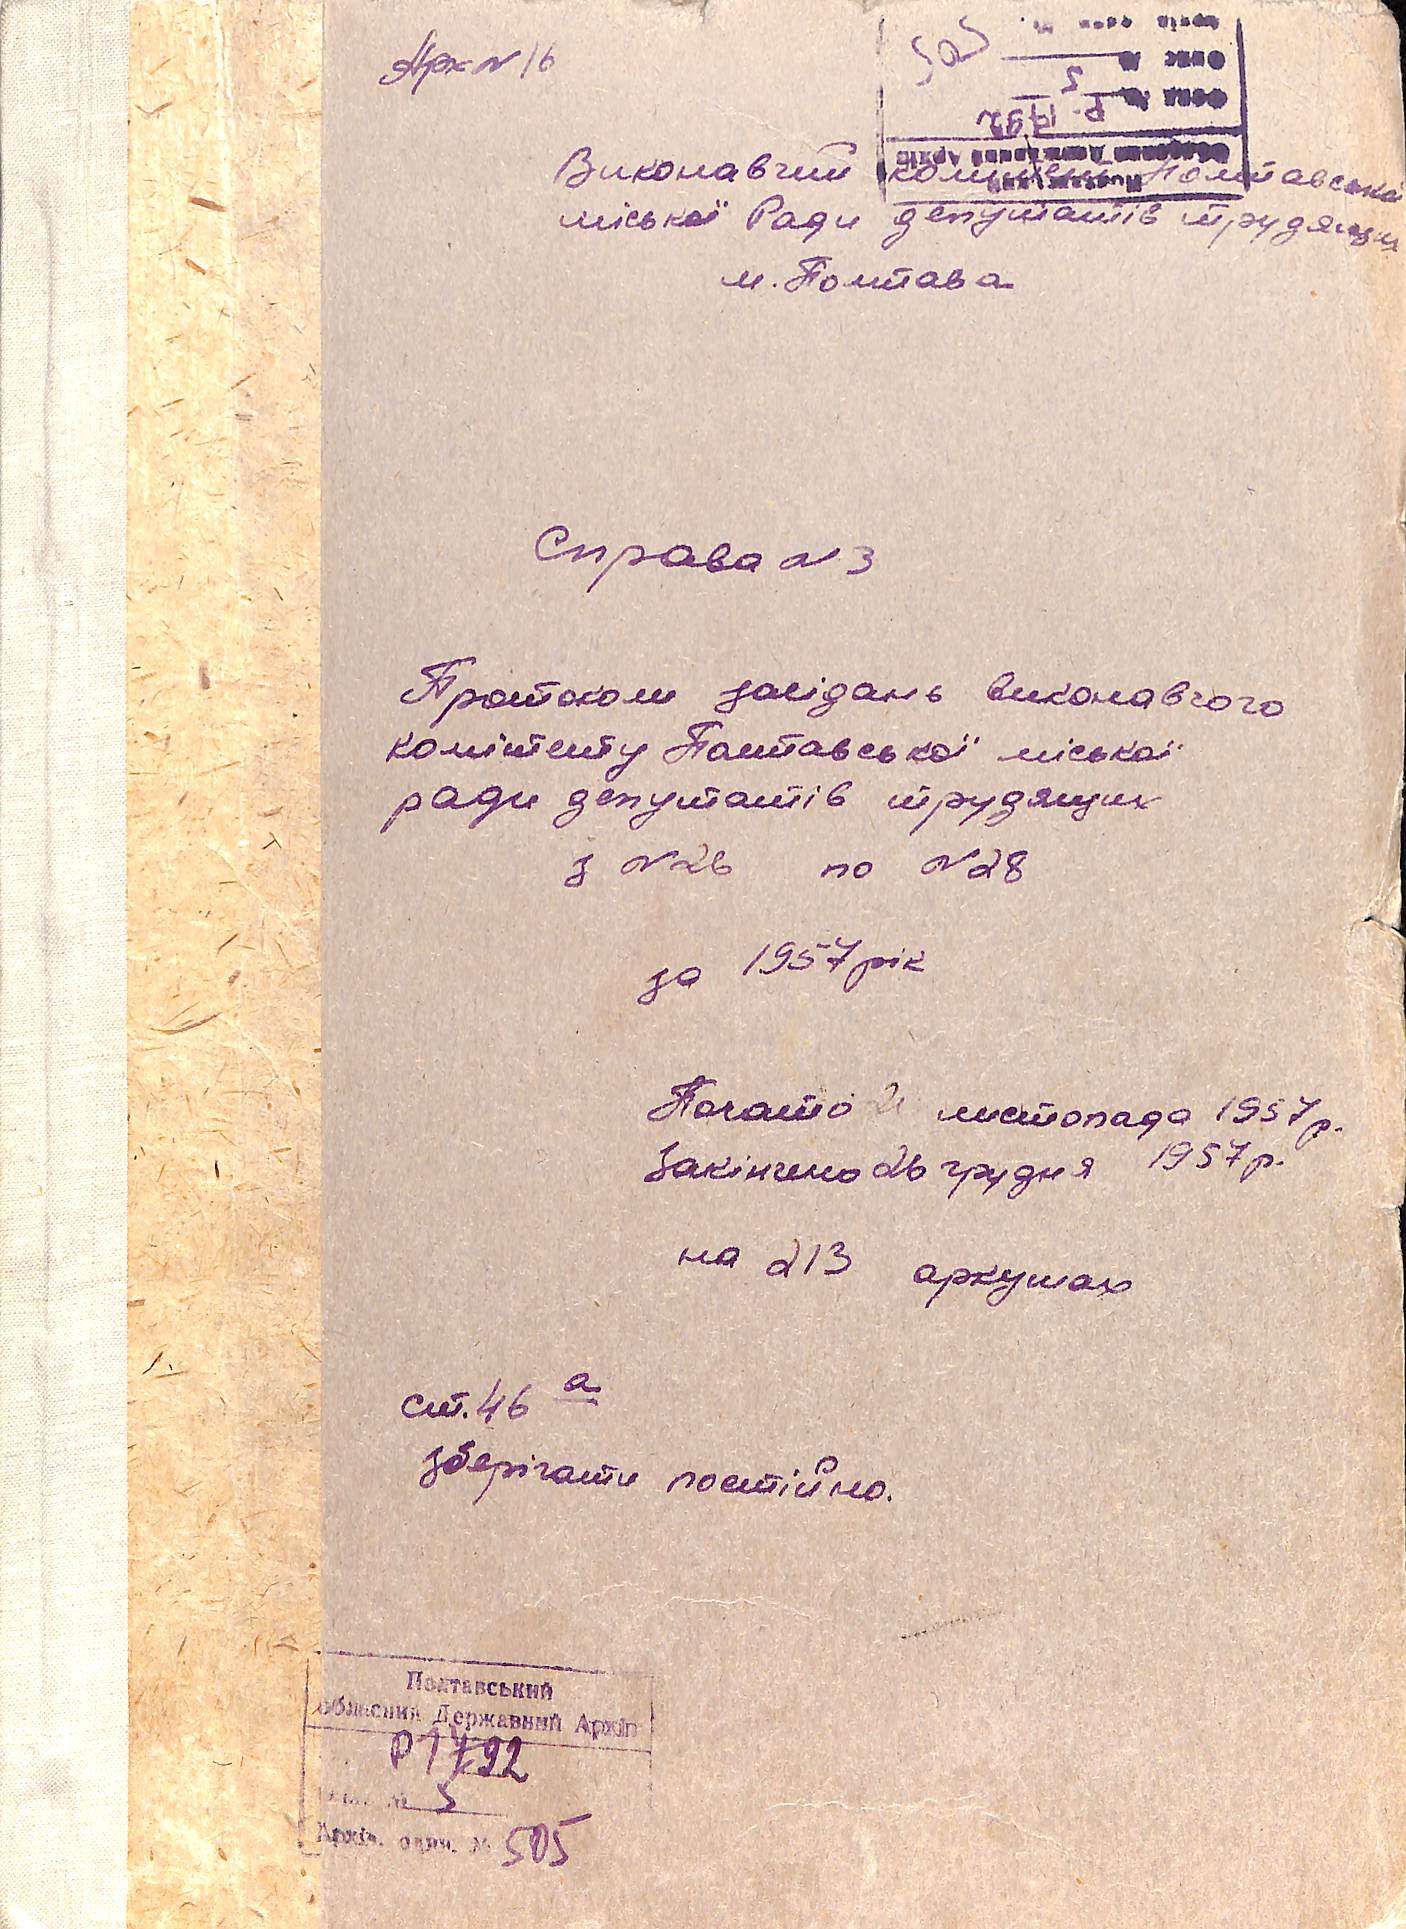 Арх N 16
505
5
Р-1792
Виконавчий комітет Полтавської
міської Ради депутатів трудящих
м. Полтава
Справа N 3
Протоколи засідань виконавчого
комітету Полтавської міської
ради депутатів трудящих
з N 26 по N 28
за 1957 рік
Почато 21 листопада 1957 р.
Закінчено 26 грудня 1957 р.
на 213 аркушах
ст. 46 а
зберігати постійно.
Полтавський
обласний Державний Архів
Р1792
№ 5
Архів. один. № 505